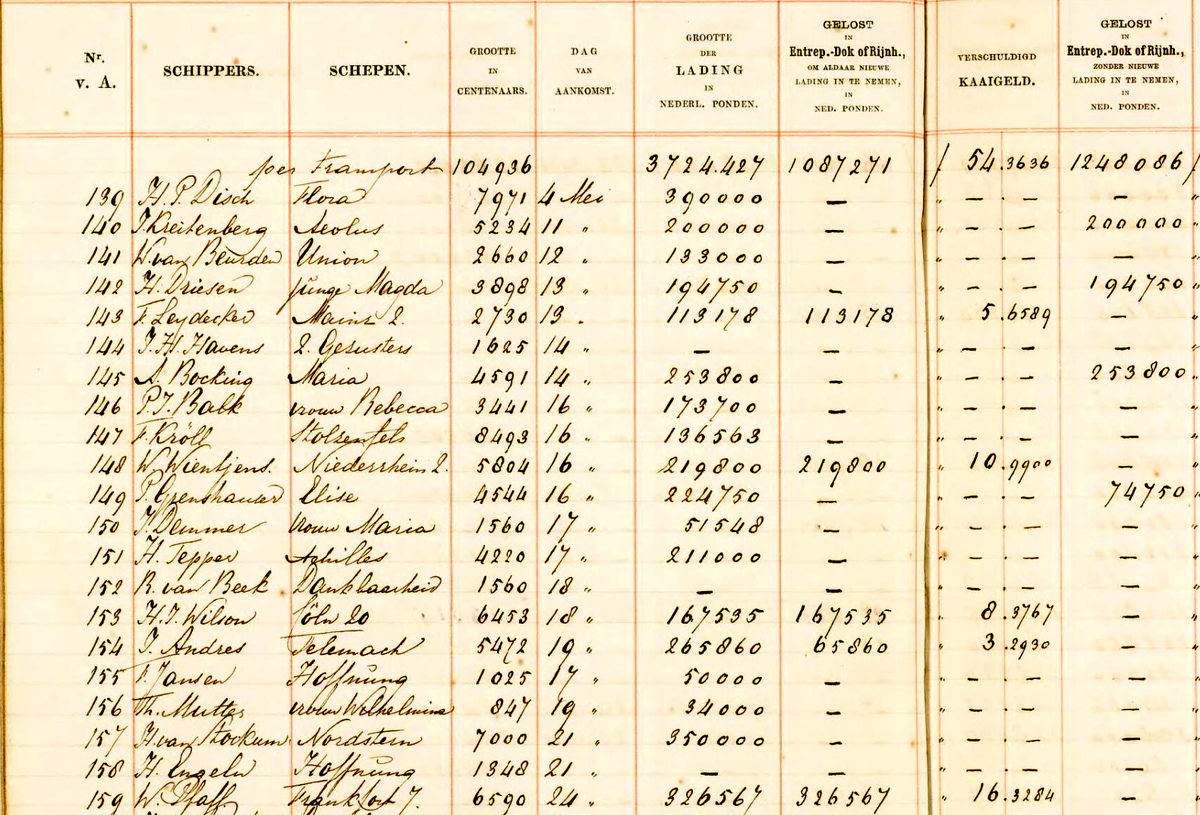 Nr. v. A. SCHIPPERS. SCHEPEN. GROOTTE IN CENTENAARS. DAG VAN AANKOMST. GROOTTE DER LADING IN NEDERL. PONDEN. GELOST IN Entrep.-Dok of Rijnh., OM ALDAAR NIEUWE LADING IN TE NEMEN, IN NED. PONDEN. VERSCHULDIGD KAAIGELD. GELOST IN Entrep.-Dok of Rijnh., ZONDER NIEUWE LADING IN TE NEMEN, IN NED. PONDEN.
per Transport 104936 3724.427 1087271 / 54.3636 1248086 /
139 H. P. Disch Flora 7971 4 Mei 390000 — „ — . — — „
140 J. Kreitenberg Aeolus 5234 11 „ 200000 — „ — . — 200000 „
141 W. van Beurden Union 2660 12 „ 133000 — „ — . — — „
142 H. Driesen junge Magda 3898 13 „ 194750 — „ — . — 194750 „
143 F. Leydecker Mainz 2. 2730 13 „ 113178 113178 „ 5.6589 — „
144 J. H. Havens 2. Gezusters 1625 14 „ — — „ — . — — „
145 A. Bocking Maria 4591 14 „ 253800 — „ — . — 253800 „
146 P. J. Balk vrouw Rebecca 3441 16 „ 173700 — „ — . — — „
147 F. Kröll Stolzenfels 8493 16 „ 136563 — „ — . — — „
148 W. Wientjens. Niederrhein 2. 5804 16 „ 219800 219800 „ 10.9900 — „
149 Elise 4544 16 „ 224750 — „ — . — 74750 „
150 J. Demmer vrouw Maria 1560 17 „ 51548 — „ — . — — „
151 H. Tepper Achilles 4220 17 „ 211000 — „ — . — — „
152 R. van Beek Dankbaarheid 1560 18 „ — — „ — . — — „
153 H. J. Wilson Cöln 20 6453 18 „ 167535 167535 „ 8.3767 — „
154 J. Andres Telemach 5472 19 „ 265860 65860 „ 3.2930 — „
155 Jansen Hoffnung 1025 17 „ 50000 — „ — . — — „
156 Th. Mutter vrouw Wilhelmina 847 19 „ 34000 — „ — . — — „
157 H. van Stockum Nordstern 7000 21 „ 350000 — „ — . — — „
158 H. Engeln Hoffnung 1348 21 „ — — „ — . — — „
159 W. Pfaff Frankfort 7. 6590 24 „ 326567 326567 „ 16.3284 — „